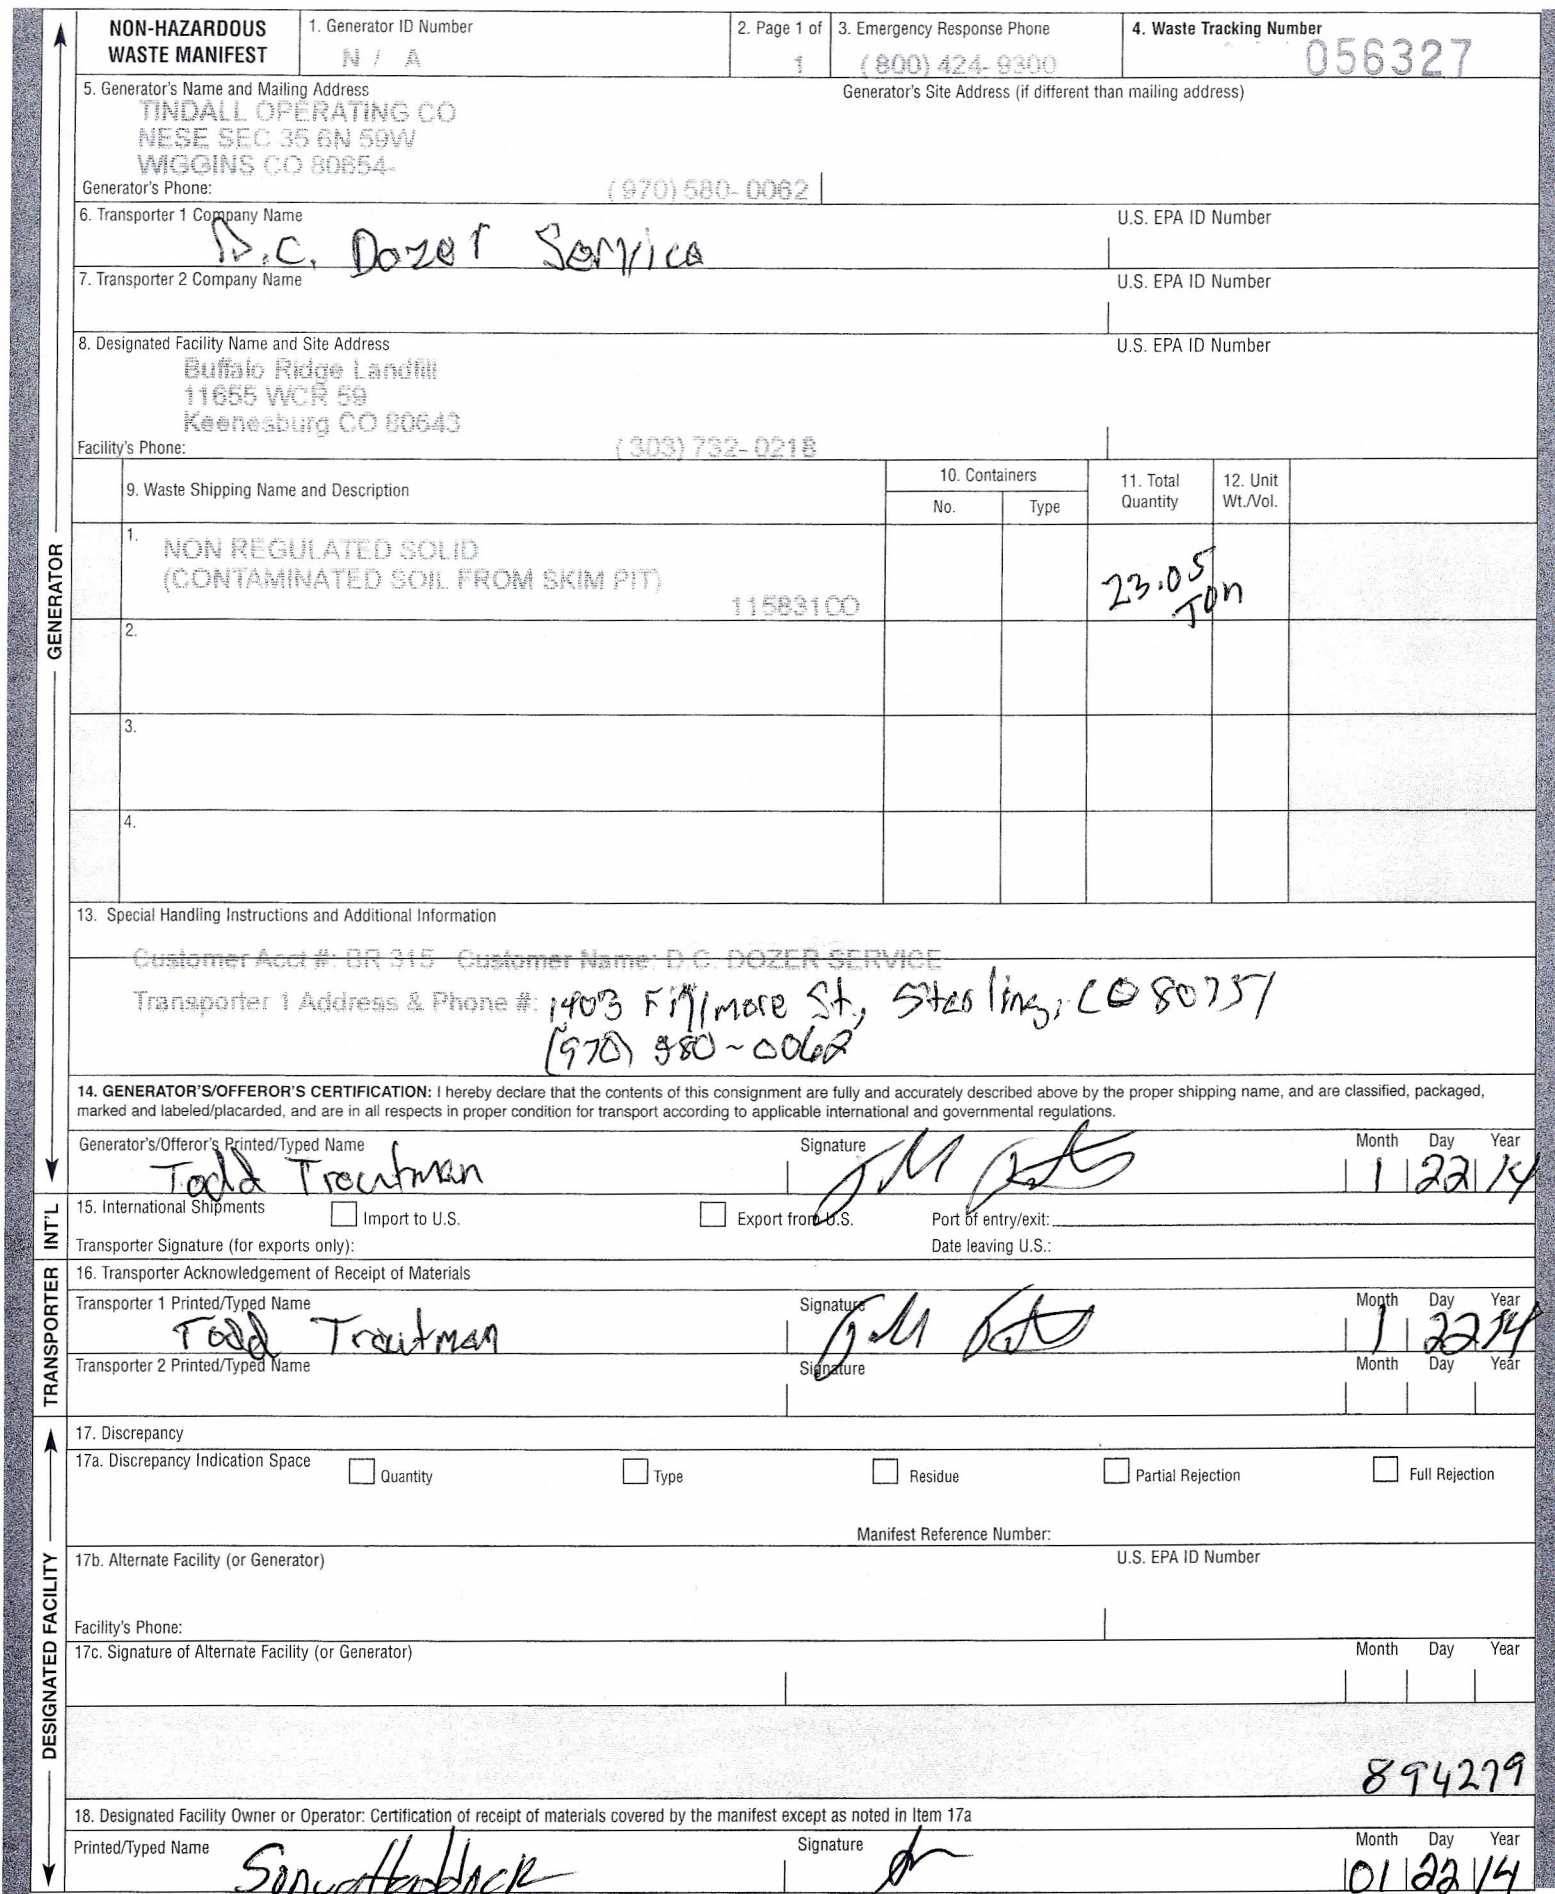 NON-HAZARDOUS
WASTE MANIFEST
1. Generator ID Number
N / A
2. Page 1 of
1
3. Emergency Response Phone
(800) 424-9300
4. Waste Tracking Number
056327
5. Generator's Name and Mailing Address
Generator's Site Address (if different than mailing address)
TINDALL OPERATING CO
NESE SEC 35 6N 59W
WIGGINS CO 80654-
Generator's Phone: (970) 580-0062
6. Transporter 1 Company Name
U.S. EPA ID Number
D.C. Dozer Service
7. Transporter 2 Company Name
U.S. EPA ID Number
8. Designated Facility Name and Site Address
U.S. EPA ID Number
Buffalo Ridge Landfill
11655 WCR 59
Keenesburg CO 80643
Facility's Phone: (303) 732-0218
9. Waste Shipping Name and Description
10. Containers
No.
Type
11. Total
Quantity
12. Unit
Wt./Vol.
1.
NON REGULATED SOLID
(CONTAMINATED SOIL FROM SKIM PIT)
1158310O
23.05
Ton
2.
3.
4.
13. Special Handling Instructions and Additional Information
Customer Acct #: BR 315 Customer Name: D.C. DOZER SERVICE
Transporter 1 Address & Phone #: 1403 Fillmore St., Sterling, CO 80751
(970) 580-0062
14. GENERATOR'S/OFFEROR'S CERTIFICATION: I hereby declare that the contents of this consignment are fully and accurately described above by the proper shipping name, and are classified, packaged,
marked and labeled/placarded, and are in all respects in proper condition for transport according to applicable international and governmental regulations.
Generator's/Offeror's Printed/Typed Name
Signature
Month Day Year
Todd Troutman
1 22 14
15. International Shipments
Import to U.S.
Export from U.S.
Port of entry/exit:
Transporter Signature (for exports only):
Date leaving U.S.:
16. Transporter Acknowledgement of Receipt of Materials
Transporter 1 Printed/Typed Name
Signature
Month Day Year
Todd Troutman
1 22 14
Transporter 2 Printed/Typed Name
Signature
Month Day Year
17. Discrepancy
17a. Discrepancy Indication Space
Quantity
Type
Residue
Partial Rejection
Full Rejection
Manifest Reference Number:
17b. Alternate Facility (or Generator)
U.S. EPA ID Number
Facility's Phone:
17c. Signature of Alternate Facility (or Generator)
Month Day Year
894279
18. Designated Facility Owner or Operator: Certification of receipt of materials covered by the manifest except as noted in Item 17a
Printed/Typed Name
Signature
Month Day Year
01 22 14
GENERATOR
INT'L
TRANSPORTER
DESIGNATED FACILITY